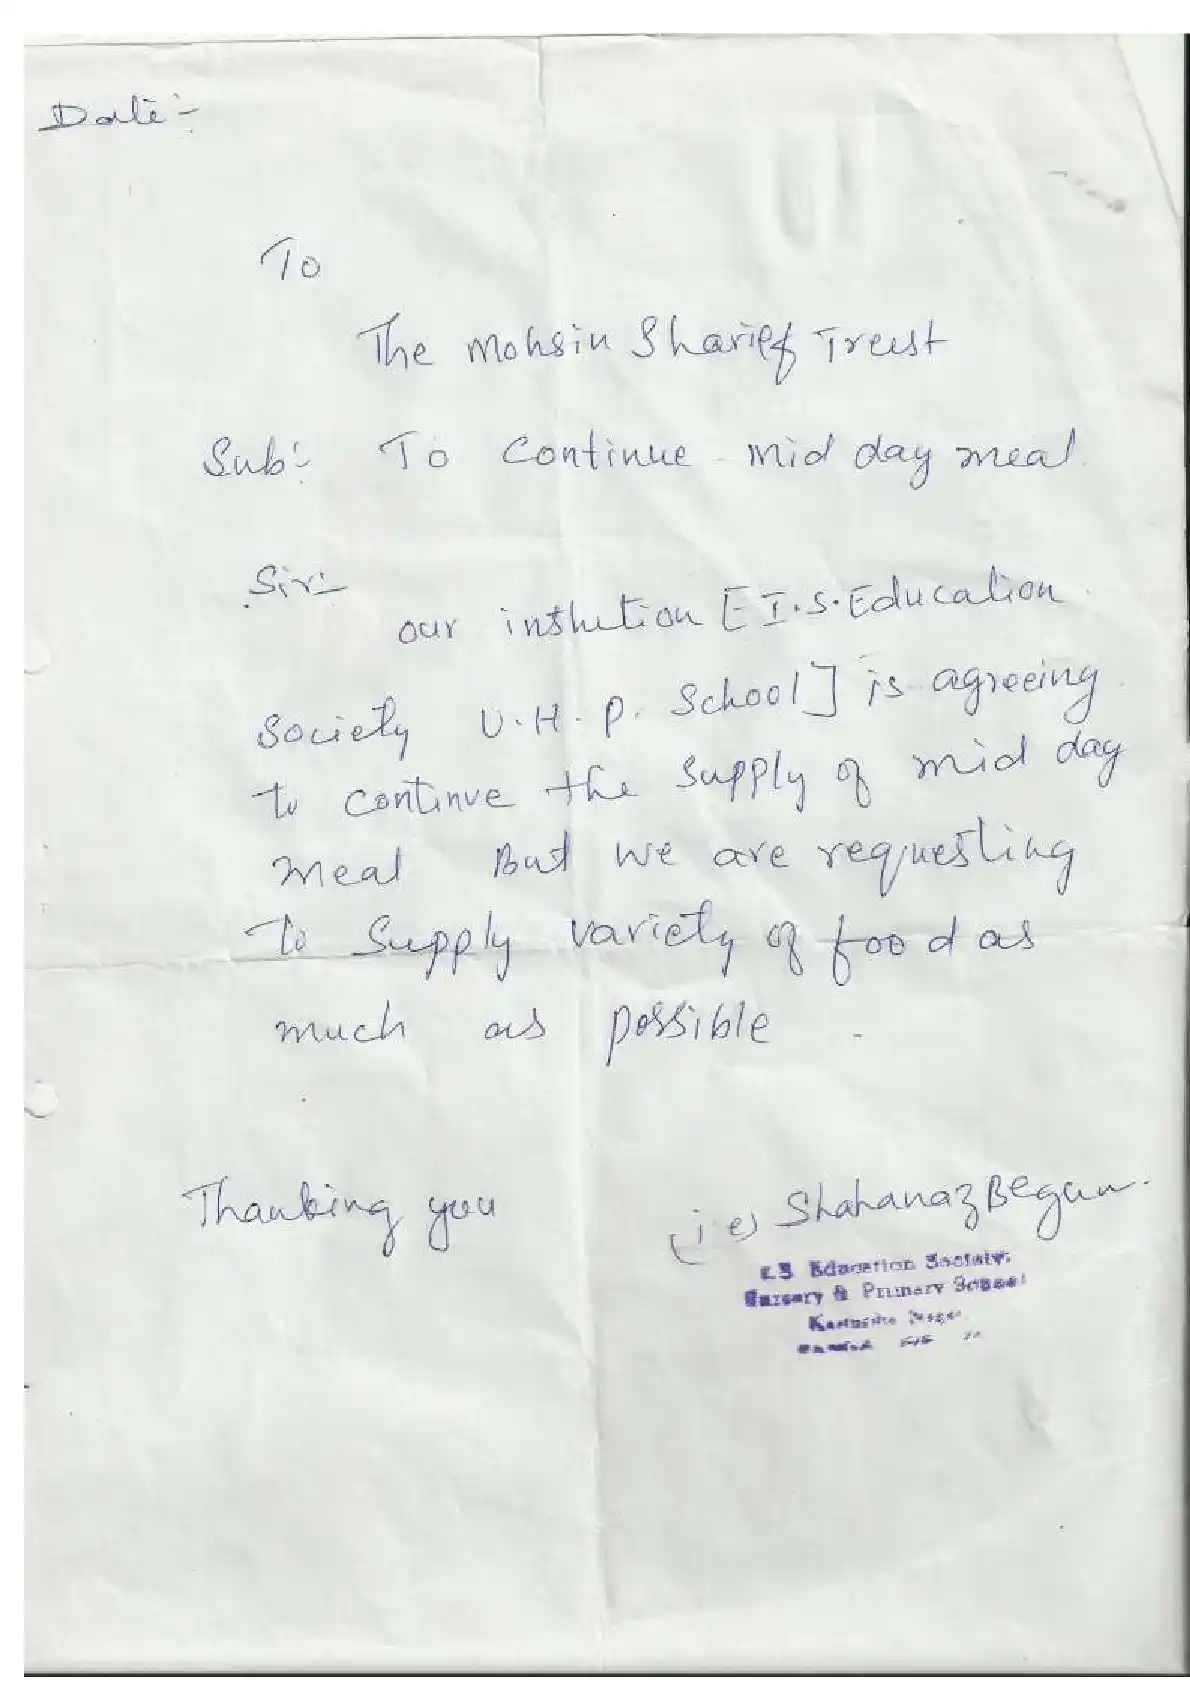 Date :-
To
The Mohsin Sharief Trust
Sub:- To Continue mid day meal.
Sir:-
our instution [I.S. Education
Society U.H.P. School] is agreeing
to continue the supply of mid day
meal But we are requesting
To Supply variety of food as
much as possible .
Thanking you
(i e) Shahanaz Begum.
I.S Education Society.
Nursery & Primary School